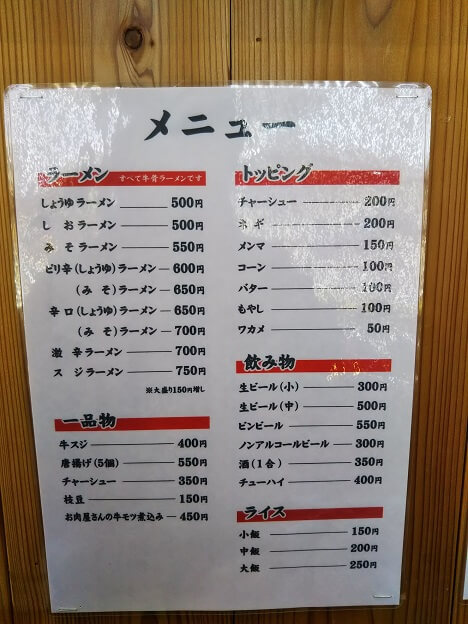 メニュー
ラーメン すべて牛骨ラーメンです
しょうゆラーメン 500円
しおラーメン 500円
みそラーメン 550円
ピリ辛(しょうゆ)ラーメン 600円
(みそ)ラーメン 650円
辛口(しょうゆ)ラーメン 650円
(みそ)ラーメン 700円
激辛ラーメン 700円
スジラーメン 750円
※大盛り150円増し
一品物
牛スジ 400円
唐揚げ(5個) 550円
チャーシュー 350円
枝豆 150円
お肉屋さんの牛モツ煮込み 450円
トッピング
チャーシュー 200円
ネギ 200円
メンマ 150円
コーン 100円
バター 100円
もやし 100円
ワカメ 50円
飲み物
生ビール(小) 300円
生ビール(中) 500円
ビンビール 550円
ノンアルコールビール 300円
酒(1合) 350円
チューハイ 400円
ライス
小飯 150円
中飯 200円
大飯 250円